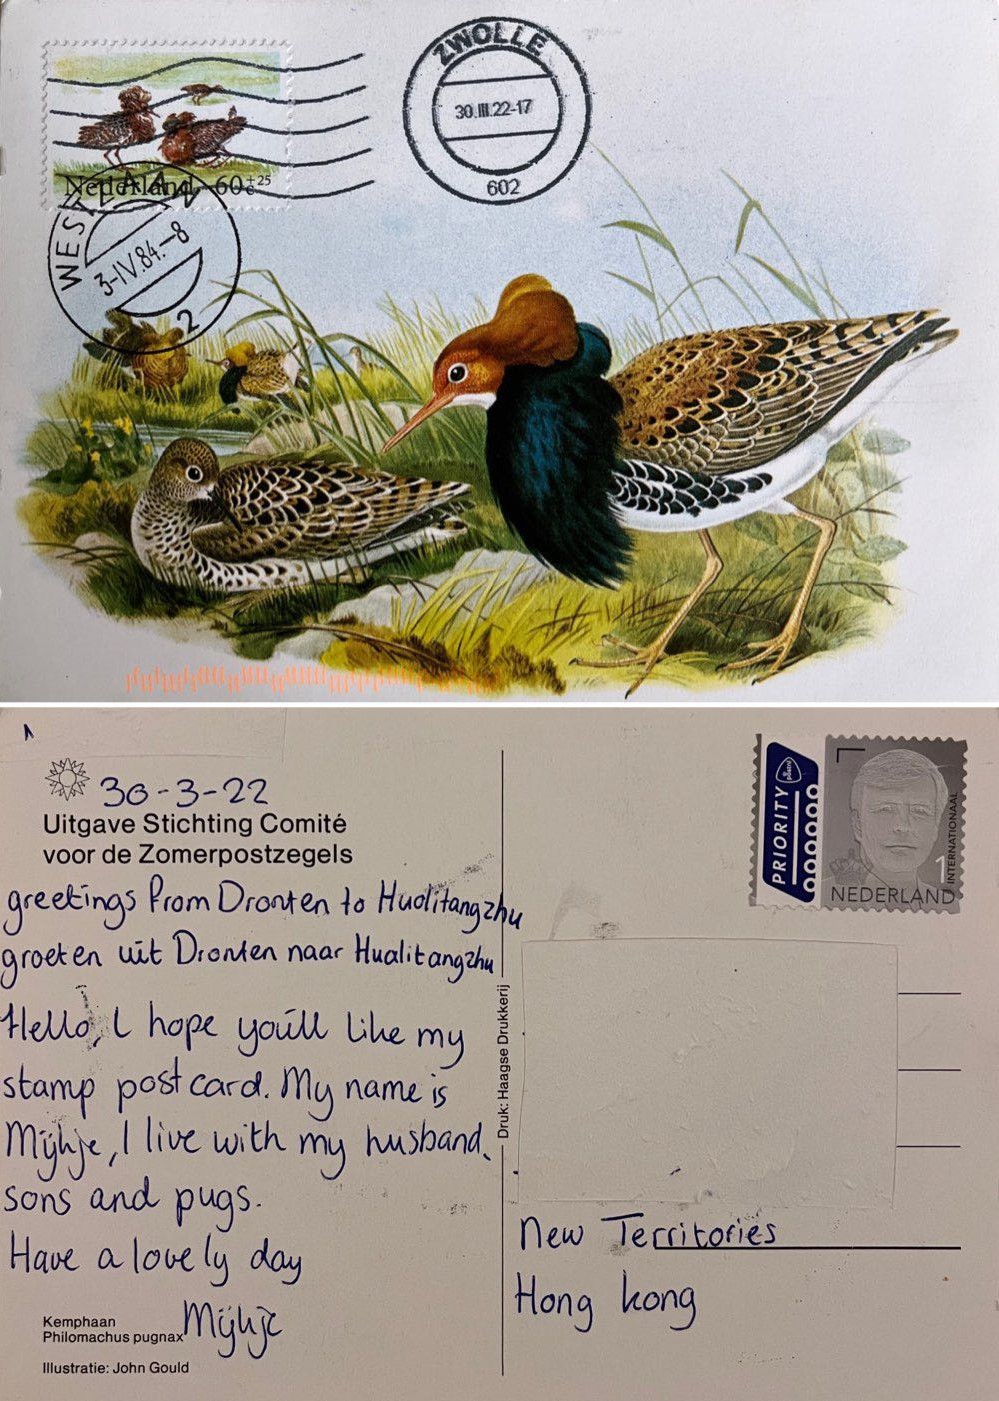 ZWOLLE
30.III.22-17
602
Nederland 60+25
c
3-IV.84.-8
2
30-3-22
Uitgave Stichting Comité
voor de Zomerpostzegels
greetings from Dronten to Huolitangzhu
groeten uit Dronten naar Hualitangzhu
Hello, I hope you'll like my
stamp postcard. My name is
Mijkje, I live with my husband,
sons and pugs.
Have a lovely day
Mijkje
Kemphaan
Philomachus pugnax
Illustratie: John Gould
Druk: Haagse Drukkerij
PRIORITY
postnl
1
INTERNATIONAAL
NEDERLAND
New Territories
Hong kong